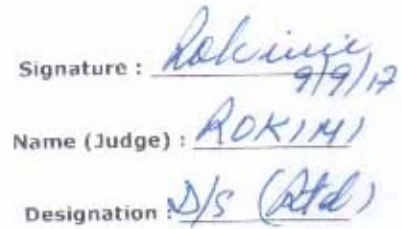 Signature : Rokimi
9/9/17
Name (Judge) : ROKIMI
Designation : D/S (Rtd)